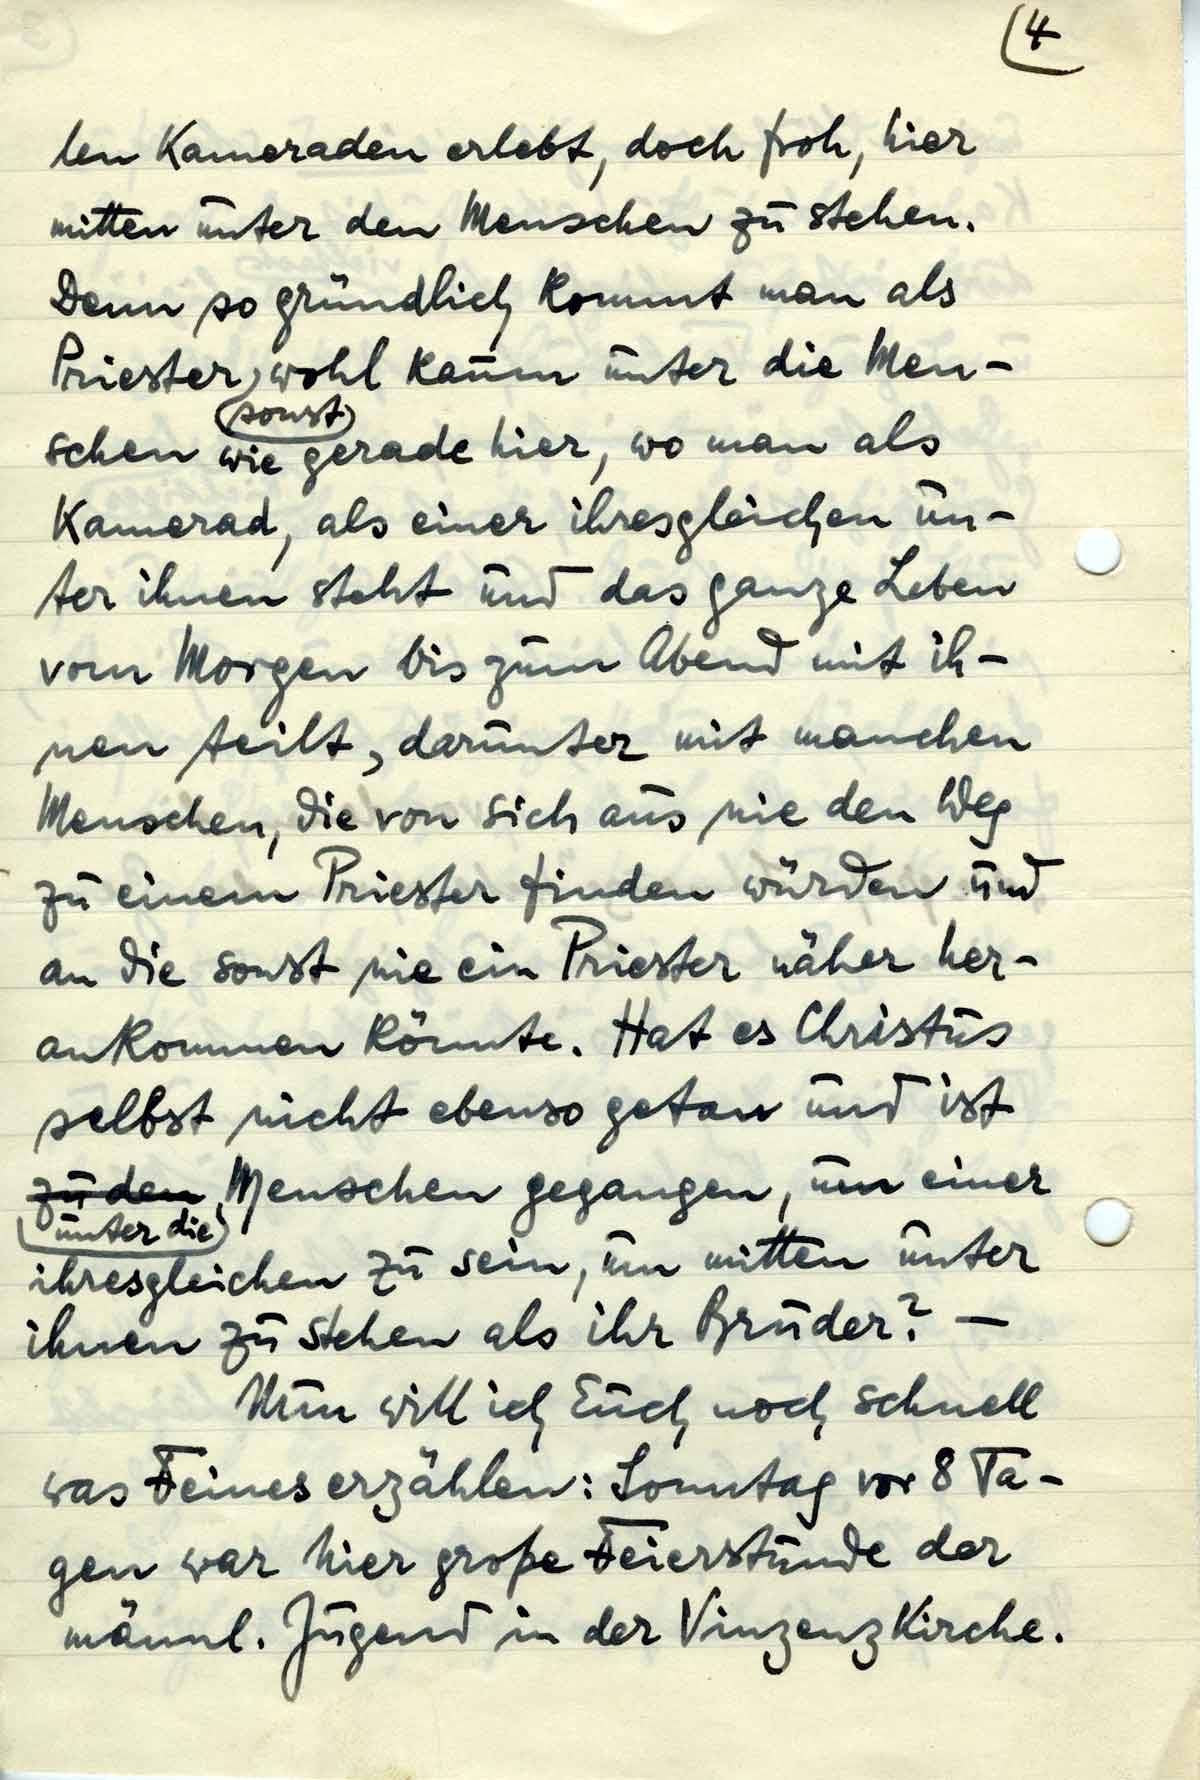 4
len Kameraden erlebt, doch froh, hier
mitten unter den Menschen zu stehen.
Denn so gründlich kommt man als
Priester wohl kaum unter die Men-
sonst
schen wie gerade hier, wo man als
Kamerad, als einer ihresgleichen un-
ter ihnen steht und das ganze Leben
vom Morgen bis zum Abend mit ih-
nen teilt, darunter mit manchen
Menschen, die von sich aus nie den Weg
zu einem Priester finden würden und
an die sonst nie ein Priester näher her-
ankommen könnte. Hat es Christus
selbst nicht ebenso getan und ist
zu den Menschen gegangen, um einer
unter die
ihresgleichen zu sein, um mitten unter
ihnen zu stehen als ihr Bruder? —
Nun will ich Euch noch schnell
was Feines erzählen: Sonntag vor 8 Ta-
gen war hier große Feierstunde der
männl. Jugend in der Vinzenzkirche.